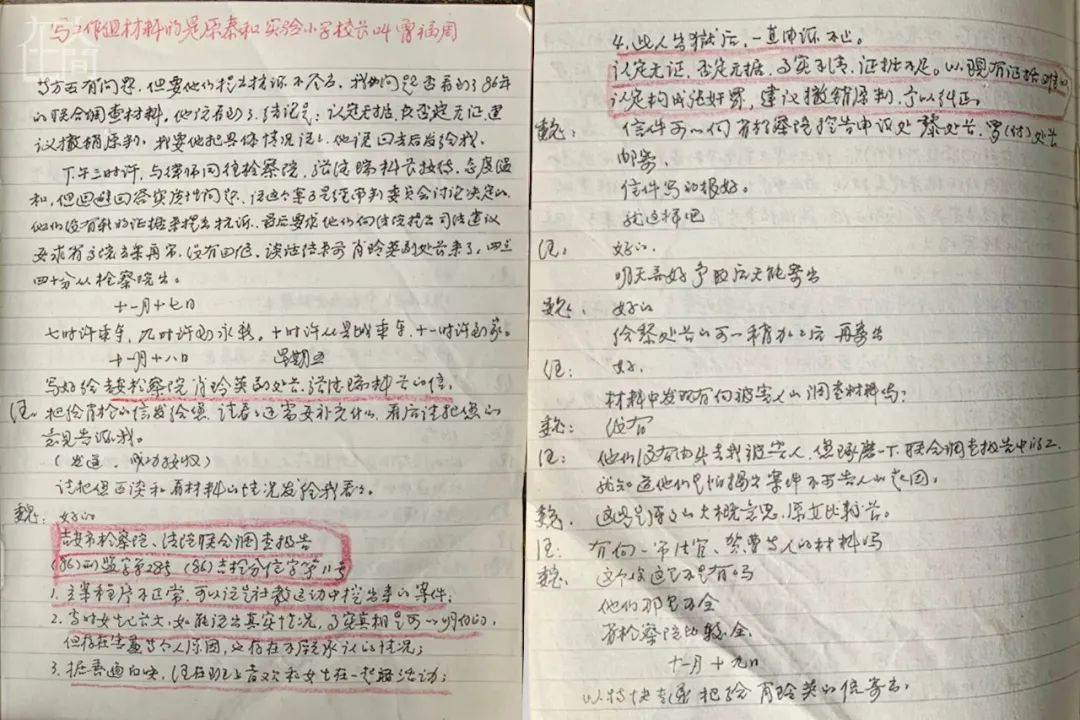 在人间
写工作组材料的是原泰和实验小学校长叫曾福周
等方面有问题，但要他们提出抗诉不容易。我们问是否看到了86年
的联合调查材料，他说看到了，结论是：认定无据，否定无证，建
议撤销原判，我要他把具体情况说说，他说回去后发给我。
下午三时许，与律师同往检察院，张法瑞科长接待，态度温
和，但回避回答实质性问题，说这个案子是经审判委员会讨论决定的，
他们没有新的证据要提出抗诉，最后要求他们向法院提出司法建议
要求省高院立案再审，没有回答，谈话结束前肖玲英副处长来了，四点
四十分从检察院出。
十一月十七日
七时许乘车，九时许到永新，十时许从县城乘车，十一时许到家。
十一月十八日 星期五
写好给吉安检察院肖玲英副处长，张法瑞科长的信，
把给省检的信发给您，请看看还需要补充什么，看后请把您的
意见告诉我。
（发过，成功接收）
请把但区谈和看材料的情况发给我看看。
魏：好的
吉安市检察院、法院联合调查报告
(86)刑监字第28号 (86)吉检分信字第11号
1. 立案程序不正常，可以说是社教运动中挖出来的案件；
2. 当时女生已六大，如能说出真实情况，事实真相是可以明白的，
但存在害羞等个人原因，也存在不愿承认的情况；
3. 据普遍反映，汪在班上喜欢和女生在一起搞活动；
4. 此人出狱后，一直申诉不止。
认定无证，否定无据，事实不清，证据不足。以现有证据难以
认定构成流氓罪，建议撤销原判，予以纠正。
魏： 信件可以向省检察院控告申诉处黎处长、罗(付)处长
邮寄。
信件写的很好。
就这样吧
汪： 好的。
明天弄好争取后天能寄出
魏： 好的
给黎处长的可以稍加工后再寄出
汪： 好。
材料中发现有向被害人的调查材料吗？
魏： 没有
汪： 他们没有出头去找被害人，您琢磨一下联合调查报告中的2.
就知道他们是怕揭出案件不可告人的起因。
魏： 这只是原文的大概意思，原文比较长。
汪： 有何一币法官、贺费等人的材料吗
魏： 这个没这还是有吗
他们那里不全
省检察院比较全。
十一月十九日
以特快专递把给肖玲英的信寄出。